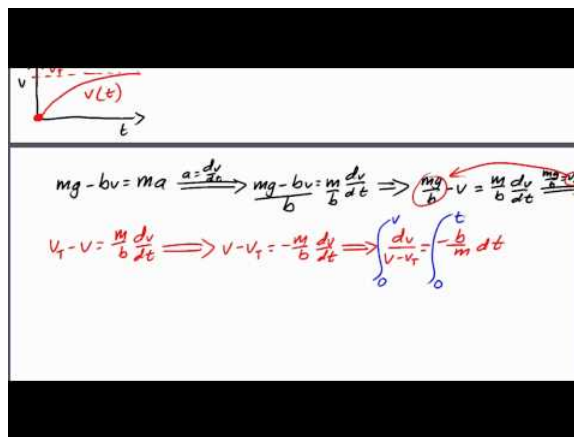 v
v(t)
t
mg - bv = ma  a = dv/dt ⟹ (mg - bv)/b = m/b dv/dt ⟹ mg/b - v = m/b dv/dt
v_T - v = m/b dv/dt ⟹ v - v_T = -m/b dv/dt ⟹ ∫₀ᵛ dv/(v - v_T) = ∫₀ᵗ -b/m dt